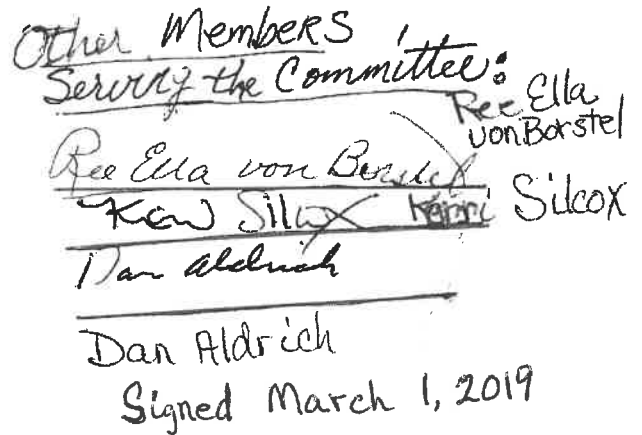 Other Members
Serving the Committee:
Ree Ella
von Borstel
Ree Ella von Borstel
Silcox Kerri Silcox
Dan Aldrich
Dan Aldrich
Signed March 1, 2019